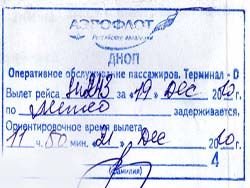 АЭРОФЛОТ
Российские авиалинии
ДНОП
Оперативное обслуживание пассажиров. Терминал - D
Вылет рейса за "19" Dec 2010 г.
по метео задерживается.
Ориентировочное время вылета
11 час. 50 мин. "21" Dec 2010 г.
(фамилия)